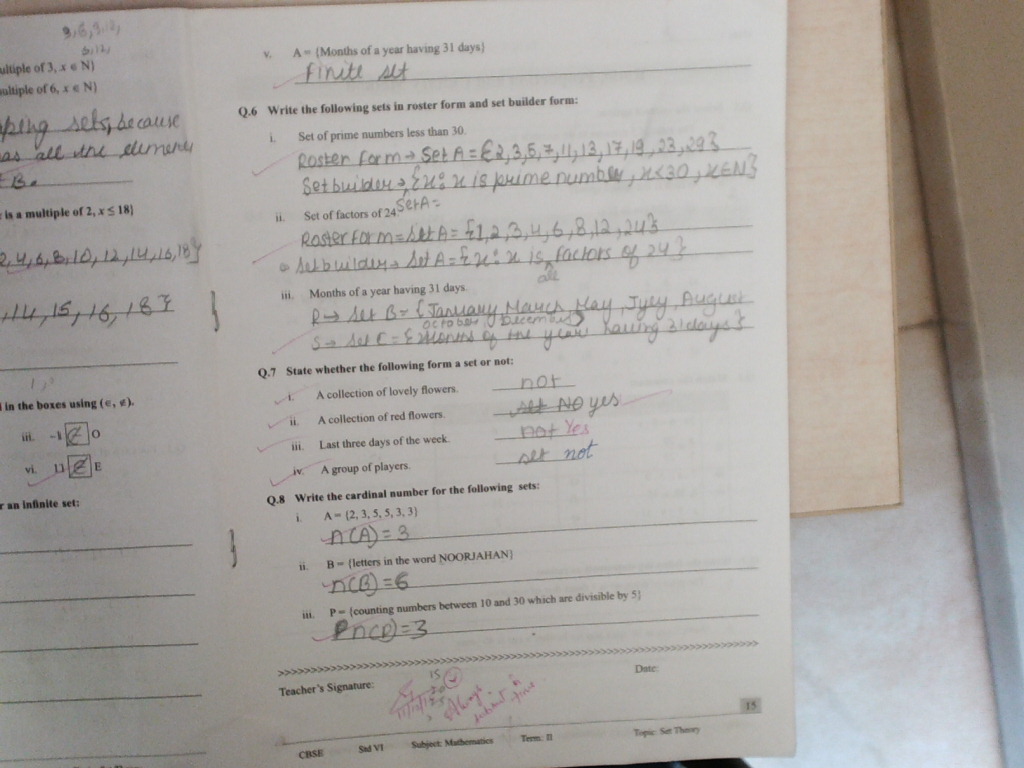 3, 6, 9, 12,
6, 12,
ultiple of 3, x ∈ N}
ultiple of 6, x ∈ N}
ping sets, because
as all the elements
B.
is a multiple of 2, x ≤ 18}
2, 4, 6, 8, 10, 12, 14, 16, 18}
14, 15, 16, 18}
in the boxes using (∈, ∉).
iii. -1 ∉ O
vi. 11 ∉ E
r an infinite set:
v. A = {Months of a year having 31 days}
finite set
Q.6 Write the following sets in roster form and set builder form:
i. Set of prime numbers less than 30.
Roster form → Set A = {2,3,5,7,11,13,17,19,23,29}
Set builder → {x: x is prime number, x<30, x∈N}
Set A =
ii. Set of factors of 24
Roster form = Set A = {1,2,3,4,6,8,12,24}
Set builder → Set A = {x: x is factors of 24}
all
iii. Months of a year having 31 days.
R → Set B = {January, March, May, Jyly, August
October, December}
S → Set C = {x months of the year having 31 days}
Q.7 State whether the following form a set or not:
i. A collection of lovely flowers. not
ii. A collection of red flowers. set NO yes
iii. Last three days of the week. not Yes
iv. A group of players. set not
Q.8 Write the cardinal number for the following sets:
i. A = {2, 3, 5, 5, 3, 3}
n(A) = 3
ii. B = {letters in the word NOORJAHAN}
n(B) = 6
iii. P = {counting numbers between 10 and 30 which are divisible by 5}
n(P) = 3
Teacher's Signature: Date:
15
20
25
Always
submit in
time
15
CBSE Std VI Subject: Mathematics Term: II Topic: Set Theory